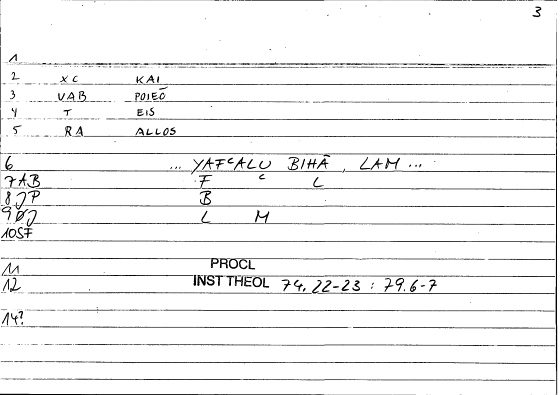 3
1
2 XC KAI
3 VAB POIEŌ
4 T EIS
5 RA ALLOS
6 ... YAFᶜALU BIHĀ, LAM ...
7AB F ᶜ L
8JP B
9ØJ L M
10SF
11 PROCL
12 INST THEOL 74. 22-23 : 79.6-7
14?